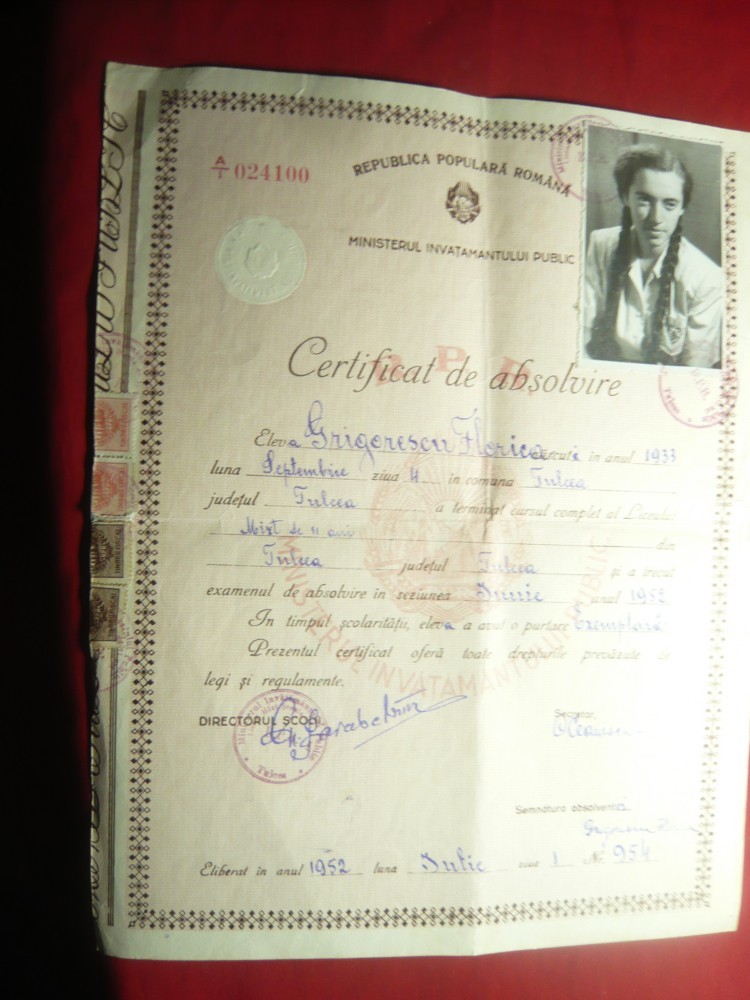 A/1 024100
REPUBLICA POPULARĂ ROMÂNĂ
MINISTERUL INVAȚAMANTULUI PUBLIC
R.P.R.
Certificat de absolvire
Eleva Grigorescu Florica născută în anul 1933
luna Septembrie ziua 4 în comuna Tulcea
județul Tulcea a terminat cursul complet al Liceului
Mixt de 11 ani din
Tulcea județul Tulcea și a trecut
examenul de absolvire în sesiunea Iunie anul 1952
In timpul școlarității, eleva a avut o purtare Exemplară
Prezentul certificat oferă toate drepturile prevăzute de
legi și regulamente.
MINISTERUL INVĂȚAMANTULUI PUBLIC
DIRECTORUL ȘCOLII
Secretar,
Tulcea
Semnatura absolventei
Eliberat în anul 1952 luna Iulie ziua 1 No 954